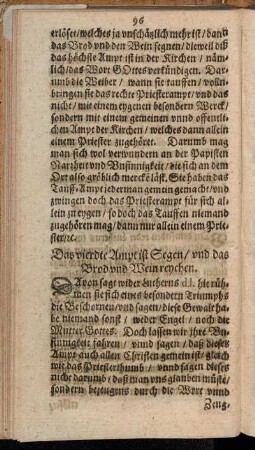 96
erlöset/welches ja vnschätzlich mehr ist/dann
das Brod vnd den Wein segnen/dieweil diß
das höchste Ampt ist in der Kirchen/näm⸗
lich/das Wort GOttes verkündigen. Dar⸗
umb die Weiber/wann sie tauffen/volln⸗
bringen sie das rechte Priesterampt/vnd das
nicht/mit einem eygenen besondern Werck/
sondern mit einem gemeinen vnnd offentli⸗
chen Ampt der Kirchen/welches dann allein
einem Priester zugehöret. Darumb mag
man sich wol verwundern an der Papisten
Narrheit vnd Vnsinnigkeit/die sich an dem
Ort also gröblich mercke läst. Sie haben das
Tauff⸗Ampt jederman gemein gemacht/vnd
zwingen doch das Priesterampt für sich al⸗
lein zu eygen/so doch das Tauffen niemand
zugehören mag/dann nur allein einem Prie⸗
ster/rc.
Das vierdte Ampt ist Segen/vnd das
Brod vnd Wein reychen.
Davon sagt wider Lutherus d.l. hie rüh⸗
men sie sich eines besondern Triumphs
die Beschornen/vnd sagen/diese Gewalt ha⸗
be niemand sonst/weder Engel/noch die
Mutter Gottes. Doch lassen wir jhre Vn⸗
sinnigkeit fahren/vnnd sagen/daß dieses
Ampt auch allen Christen gemein ist/gleich
wie das Priesterthumb/vnnd sagen dieses
nicht darumb/daß man vns glauben müste/
sondern bezeugens durch die Wort vnnd
Zeug⸗